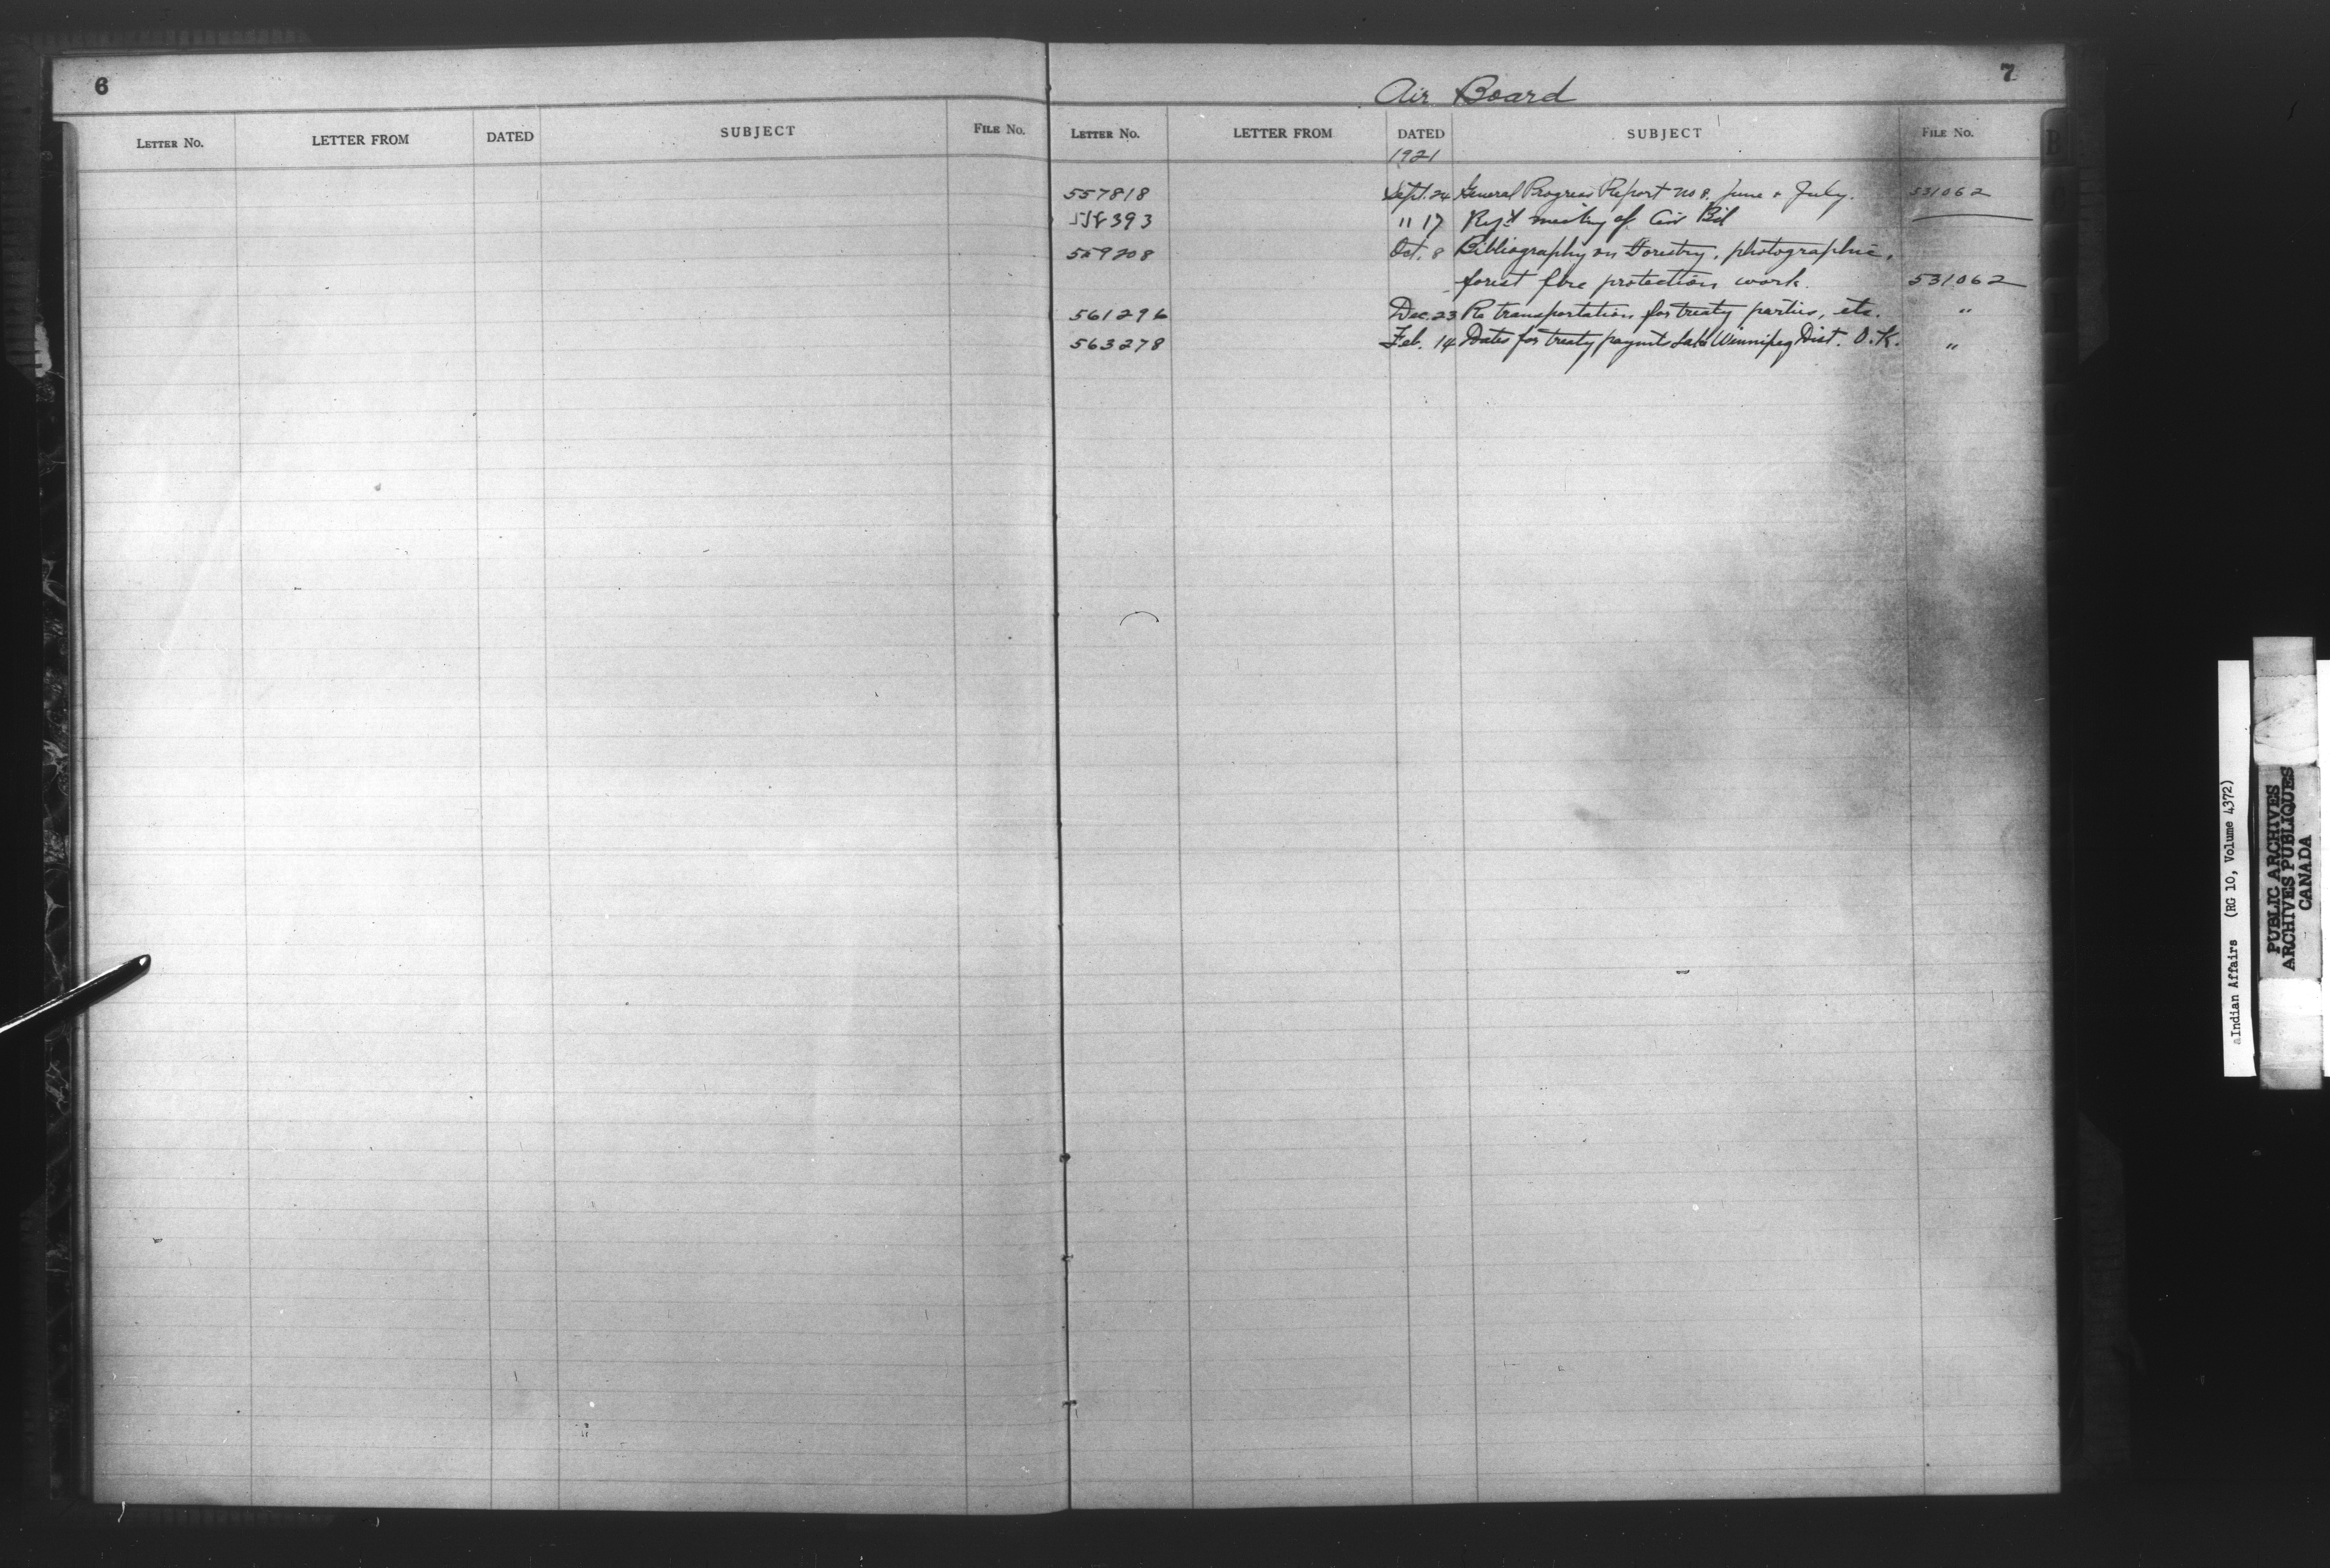 6
LETTER No. LETTER FROM DATED SUBJECT FILE No.
Air Board 7
LETTER No. LETTER FROM DATED SUBJECT FILE No.
1921
557818 Sept. 24 General Progress Report No 8, June & July. 531062
558393 " 17 meeting of Air Bd
559208 Oct. 8 Bibliography on Forestry, photographic,
forest fire protection work. 531062
561296 Dec. 23 Re transportation for treaty parties, etc. "
563278 Feb. 14 Dates for treaty paymts Lake Winnipeg Dist. O.K. "
B
Indian Affairs (RG 10, Volume 4372)
PUBLIC ARCHIVES
ARCHIVES PUBLIQUES
CANADA